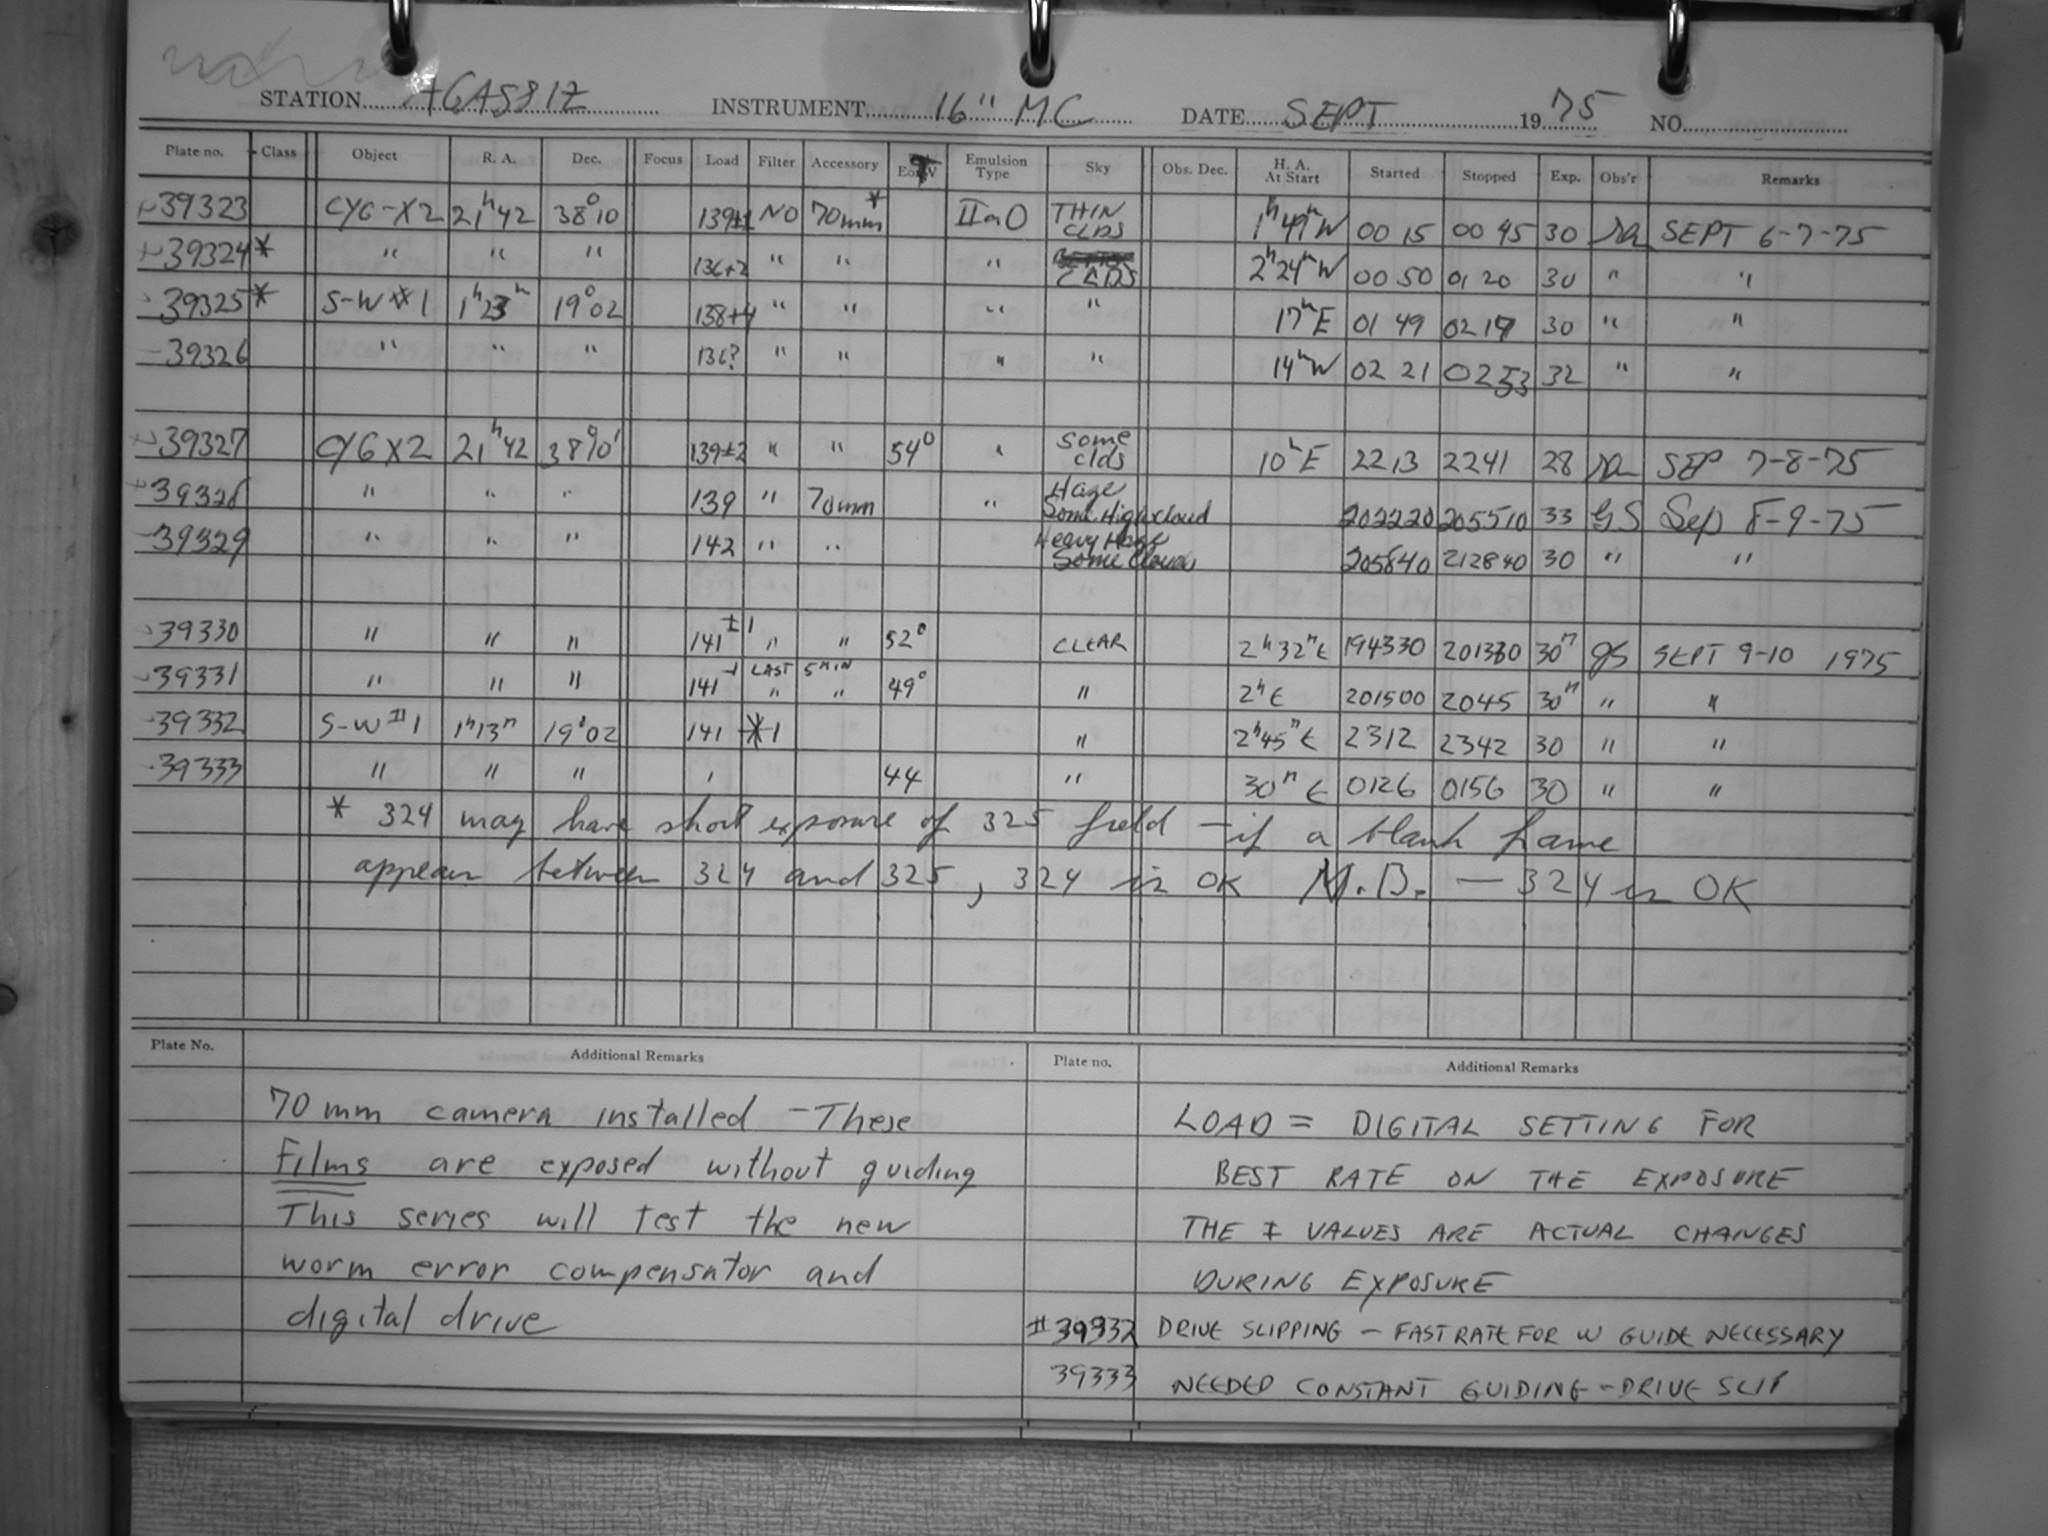 STATION AGASSIZ INSTRUMENT 16" MC DATE SEPT 1975 NO.
Plate no. Class Object R. A. Dec. Focus Load Filter Accessory E or W T Emulsion Type Sky Obs. Dec. H. A. At Start Started Stopped Exp. Obs'r Remarks
39323 CYG-X2 21h42 38°10 139±1 NO 70mm* IIaO THIN CLDS 1h49mW 00 15 00 45 30 SEPT 6-7-75
39324 * " " " 136+2 " " " CLDS 2h24mW 00 50 01 20 30 " "
39325 * S-W #1 1h23m 19°02 138+4 " " " " 17mE 01 49 02 19 30 " "
39326 " " " 136? " " " " 14mW 02 21 02 53 32 " "
39327 CYG X2 21h42 38°10' 139±2 " " 54° " Some clds 10mE 2213 2241 28 SEP 7-8-75
39328 " " " 139 " 70mm " Haze Some High Cloud 202220 205510 33 GS Sep 8-9-75
39329 " " " 142 " " Heavy Haze Some Clouds 205840 212840 30 " "
39330 " " " 141±1 " " 52° CLEAR 2h32mE 194330 201330 30m gs SEPT 9-10 1975
39331 " " " 141-1 LAST 5 MIN " " 49° " 2hE 201500 2045 30m " "
39332 S-W #1 1h13m 19°02 141 ±1 " 2h45mE 2312 2342 30 " "
39333 " " " " 44 " 30mE 0126 0156 30 " "
* 324 may have short exposure of 325 field - if a blank frame
appears between 324 and 325, 324 is OK N.B. — 324 is OK
Plate No. Additional Remarks Plate no. Additional Remarks
70 mm camera installed - These
Films are exposed without guiding
This series will test the new
worm error compensator and
digital drive
LOAD = DIGITAL SETTING FOR
BEST RATE ON THE EXPOSURE
THE ± VALUES ARE ACTUAL CHANGES
DURING EXPOSURE
#39332 DRIVE SLIPPING - FAST RATE FOR W GUIDE NECESSARY
39333 NEEDED CONSTANT GUIDING - DRIVE SLIP